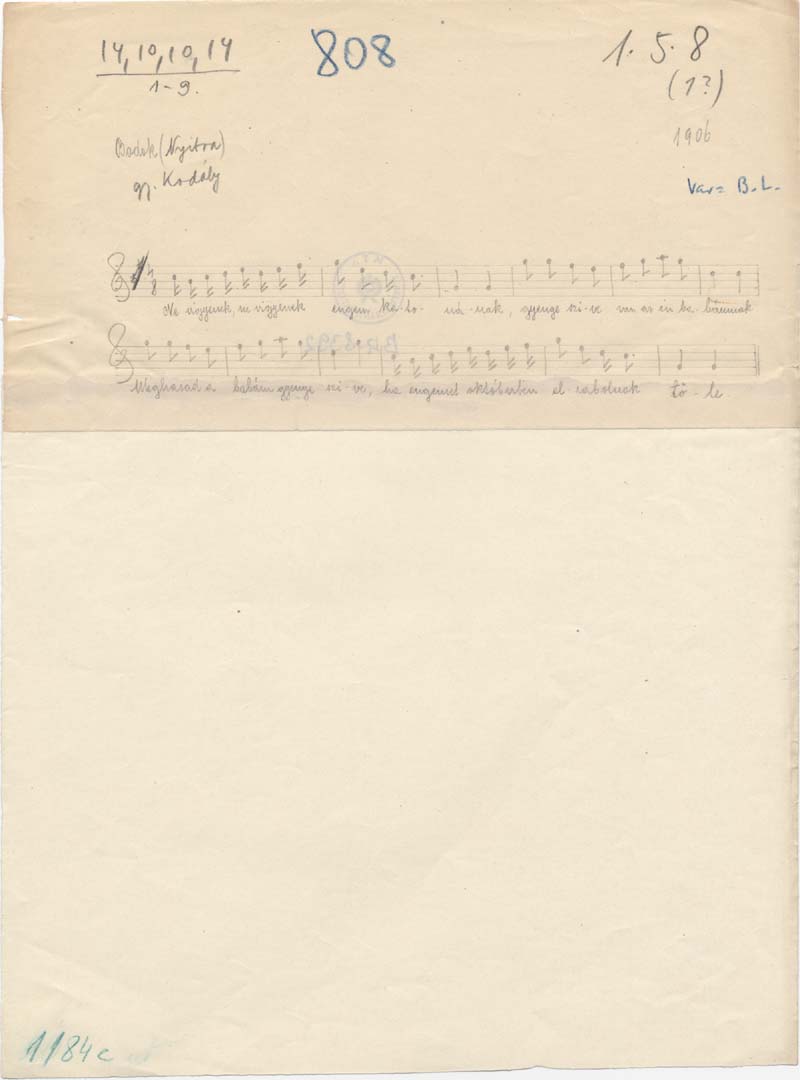 14, 10, 10, 14
1-9.
808
1. 5. 8
(1?)
1906
Bodok (Nyitra)
gy. Kodály
Var = B. L.
Ne vigyenek, ne vigyenek engem ka-to- ná-nak, gyenge szi-ve van az én ba-bámnak
Meghasad a babám gyenge szi-ve, ha engemet októberben el-rabolnak tő-le
1/84c